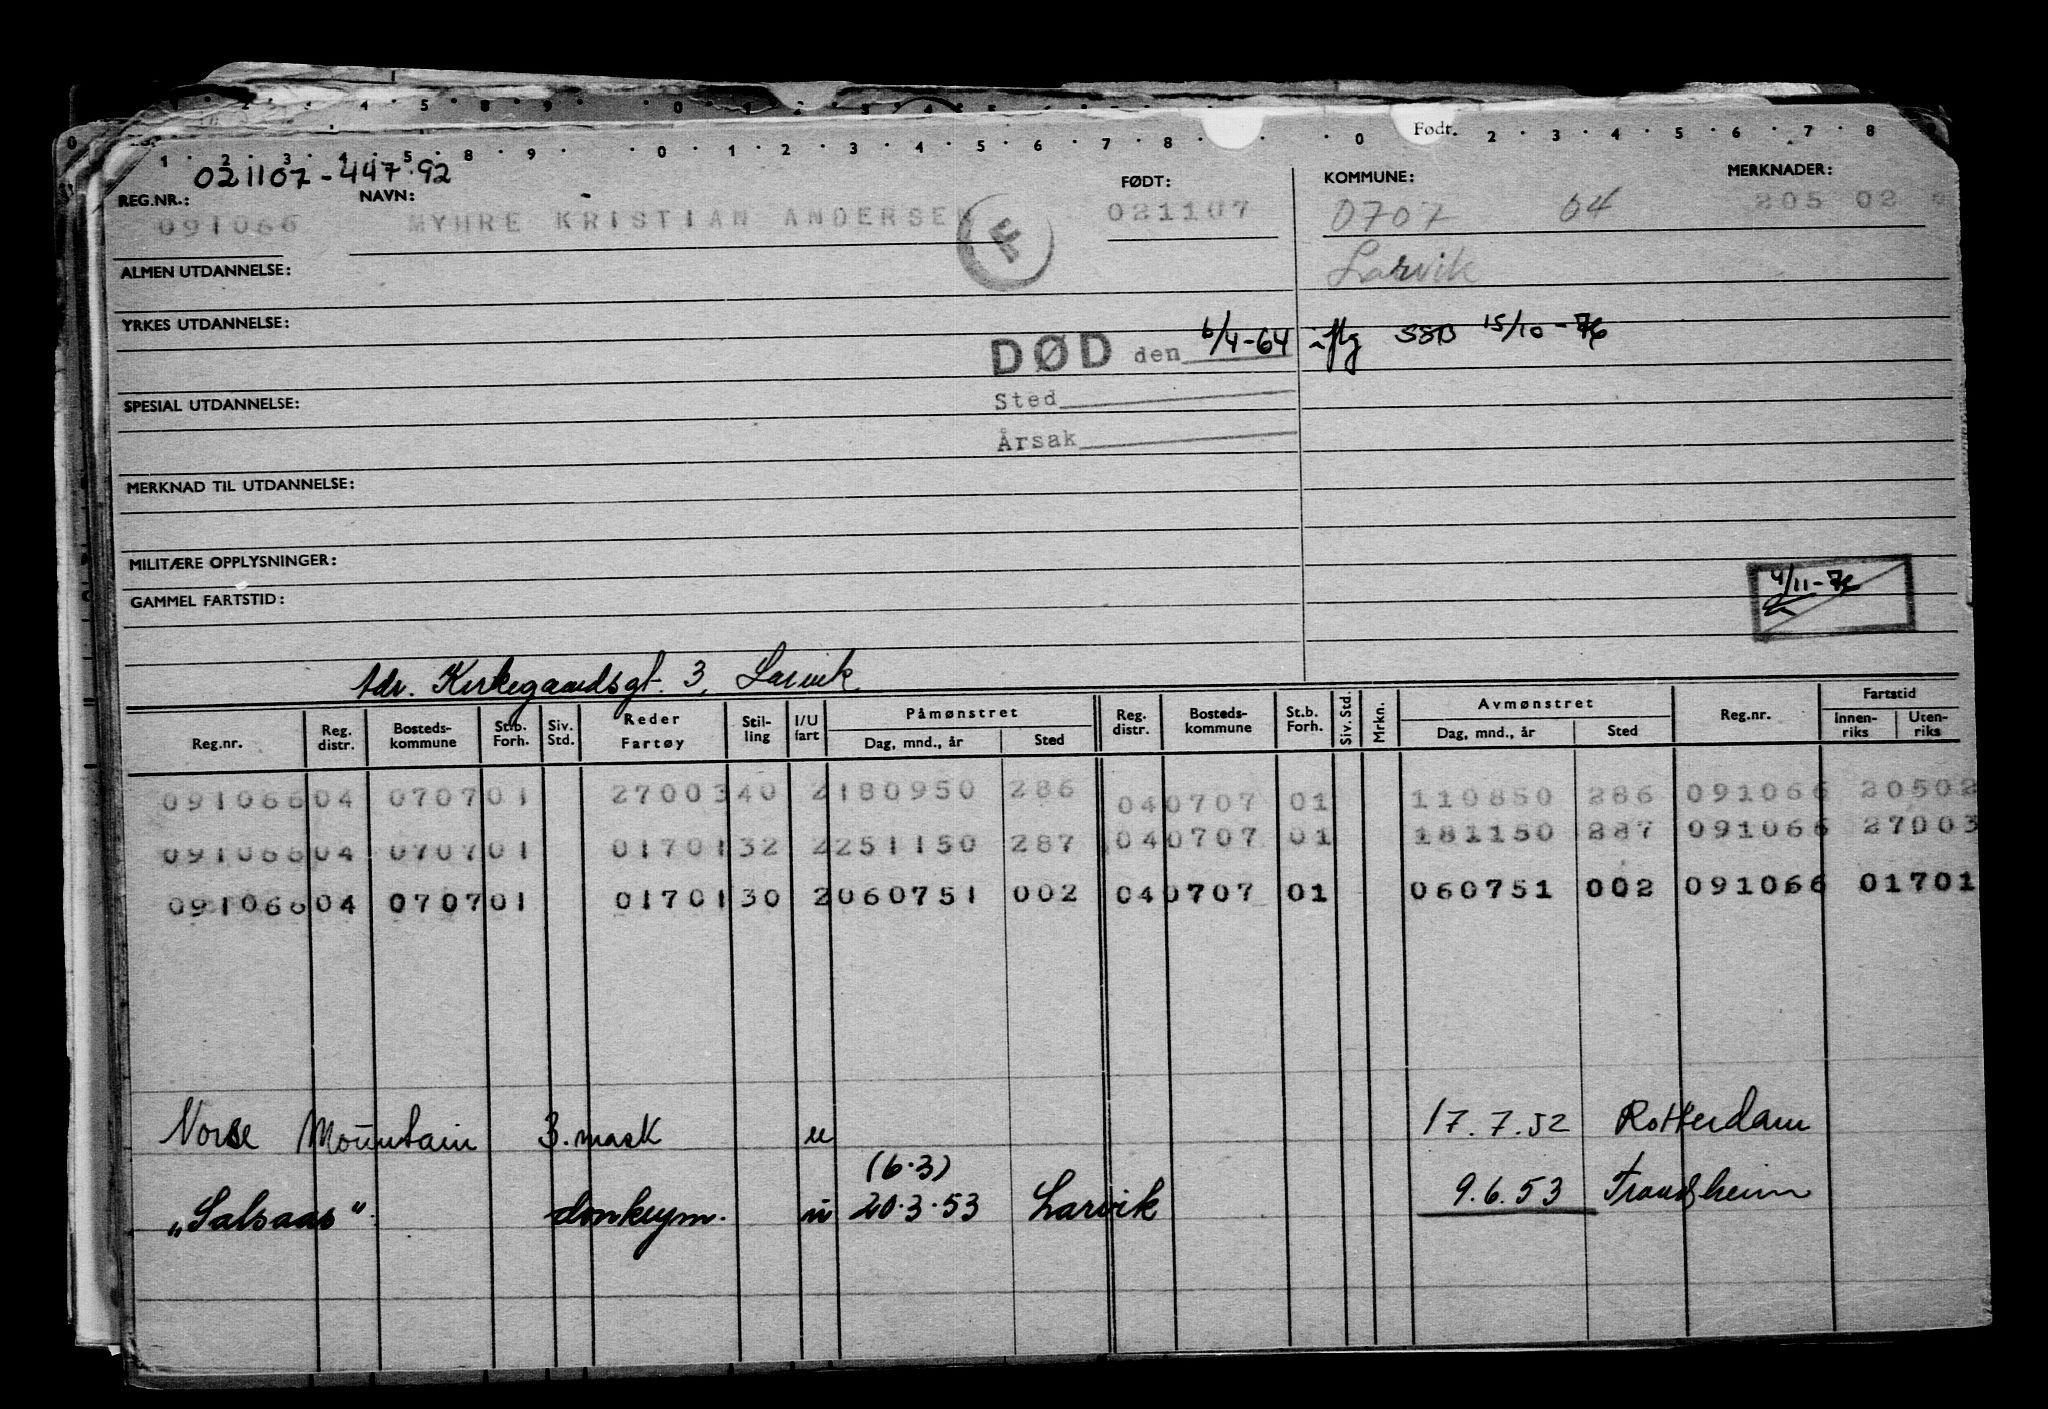 Født.
021107-447.92
REG.NR.: NAVN: FØDT: KOMMUNE: MERKNADER:
091066 MYHRE KRISTIAN ANDERSEN 021107 0707 04 205 02
Larvik
ALMEN UTDANNELSE:
YRKES UTDANNELSE:
DØD den 6/4-64 iflg SSB 15/10-76
Sted
SPESIAL UTDANNELSE:
Årsak
MERKNAD TIL UTDANNELSE:
MILITÆRE OPPLYSNINGER:
4/11-76
GAMMEL FARTSTID:
Adr. Kirkegaardsgt. 3, Larvik
Reg.nr. Reg. distr. Bosteds-kommune St.b. Forh. Siv. Std. Reder Fartøy Stil-ling I/U fart Påmønstret Dag, mnd., år Sted Reg. distr. Bosteds-kommune St.b. Forh. Siv. Std. Mrkn. Avmønstret Dag, mnd., år Sted Reg.nr. Fartstid Innen-riks Uten-riks
091066 04 0707 01 27003 40 2 180950 286 04 0707 01 110850 286 091066 20502
091066 04 0707 01 01701 32 2 251150 287 04 0707 01 181150 287 091066 27003
091066 04 0707 01 01701 30 2 060751 002 04 0707 01 060751 002 091066 01701
Norse Mountain 3. mask u 17.7.52 Rotterdam
(6.3)
"Salsaas" donkeym. u 20.3.53 Larvik 9.6.53 Trondheim